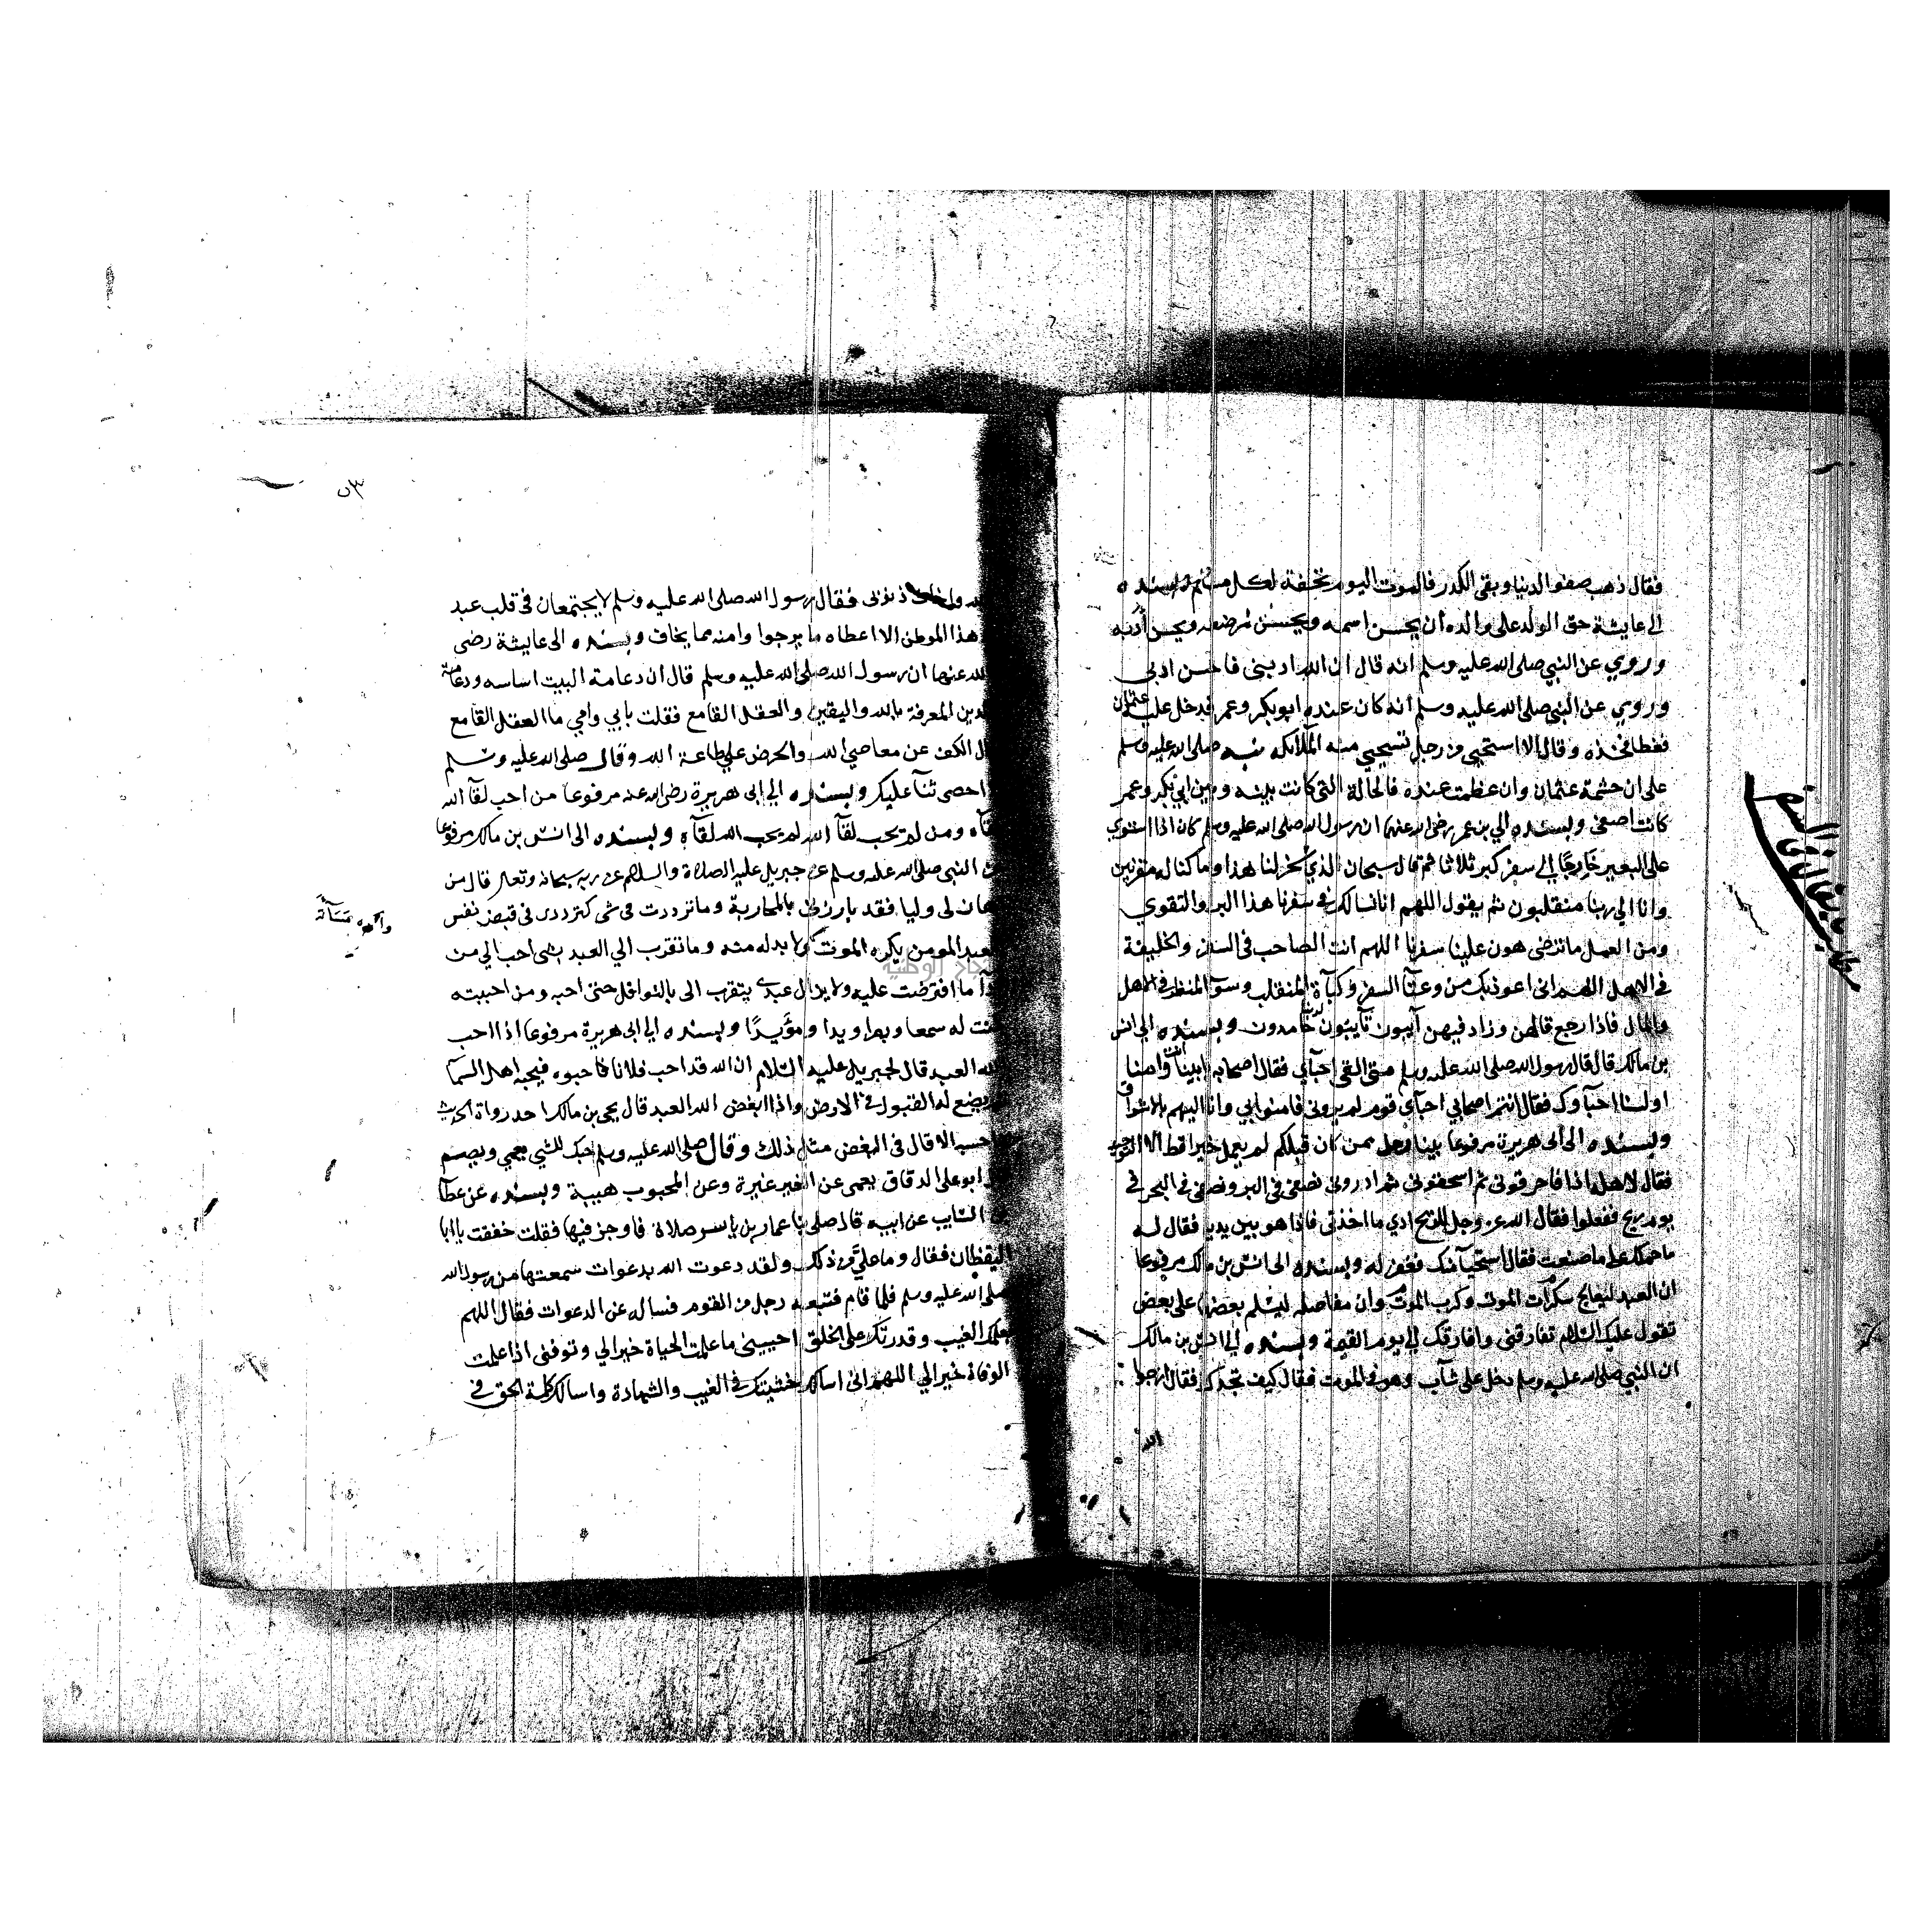 فقال ذهب صفو الدنيا وبقي الكدر فالموت اليوم تحفة لكل مسلم وبسنده
الي عايشة حق الولد على والده ان يحسن اسمه ويحسن مرضعه ويحسن أدبه
وروي عن النبي صلى الله عليه وسلم انه قال ان الله ادبني فاحسن ادبي
وروي عن النبي صلى الله عليه وسلم أنه كان عنده ابو بكر وعمر فدخل عليه عثمان
فغطا فخذه وقال الا استحيي من رجل تستحيي منه الملائكه نبه صلى الله عليه وسلم
على ان حشمة عثمان وان عظمت عنده فالحالة التي كانت بينه وبين ابي بكر وعمر
كانت اصفي وبسنده الي بن عمر رضي الله عنهما ان رسول الله صلى الله عليه وسلم كان اذا استوي
على البعير خارجًا الي سفر كبر ثلاثا ثم قال سبحان الذي سخر لنا هذا وما كنا له مقرنين
وانا الي ربنا منقلبون ثم يقول اللهم انا نسالك في سفرنا هذا البر والتقوي
ومن العمل ما ترضى هون علينا سفرنا اللهم انت الصاحب في السفر والخليفة
في الاهل اللهم اني اعوذ بك من وعثآ السفر وكآبة المنقلب وسوٓ المنظر في الاهل
والمال فاذا رجع قالهن وزاد فيهن آيبون تآيبون لربنا حامدون وبسنده الي انس
بن مالك قال قال رسول الله صلى الله عليه وسلم متى القي احبآي فقال اصحابه بابينا انت وامنا
اولسنا احبآوك فقال انتم اصحابي احبآي قوم لم يروني فامنوا بي وانا اليهم بالاشواق
وبسنده الى ابي هريرة مرفوعا بينا رجل ممن كان قبلكم لم يعمل خيرا قط الا التوحيد
فقال لاهله اذا فاحرقوني ثم اسحقوني ثم اذروني نصفي في البر ونصفي في البحر في
يوم ريح ففعلوا فقال الله عز وجل للريح ادي ما اخذتي فاذا هو بين يديه فقال له
ما حملك على ما صنعت فقال استحيآ منك فغفر له وبسنده الى انس بن مالك مرفوعا
ان العبد ليعالج سكرات الموت وكرب الموت وان مفاصله ليسلم بعضها على بعض
تقول عليك السلام تفارقني وافارقك الي يوم القيمة وبسنده الي انس بن مالك
ان النبي صلى الله عليه وسلم دخل على شآب وهو في الموت فقال كيف تجدك فقال ارجوا
الله
٥٣
ذنوبى فقال رسول الله صلى الله عليه وسلم لا يجتمعان في قلب عبد
هذا الموطن الا اعطاه ما يرجوا وامنه مما يخاف وبسنده الى عايشة رضى
الله عنها ان رسول الله صلى الله عليه وسلم قال ان دعامة البيت اساسه ودعامة
الدين المعرفة بالله واليقين والعقل القامع فقلت بابي وامي ما العقل القامع
قال الكف عن معاصي الله والحرص علي طاعة الله وقال صلى الله عليه وسلم
احصى ثنآ عليك وبسنده الي ابى هريرة رضى الله عنه مرفوعا من احب لقآ الله
لقآه ومن لم يحب لقآ الله لم يحب الله لقآه وبسنده الى انس بن مالك مرفوعا
عن النبي صلى الله عليه وسلم عن جبريل عليه الصلاة والسلام عن ربه سبحانه وتعالى قال من
اهان لى وليا فقد بارزني بالمحاربة وما ترددت في شي كترددى في قبض نفس
العبد المومن يكره الموت ولا بد له منه وما تقرب الي العبد بشي احب الي من
واكره مسآته
ادآ ما افترضت عليه ولا يزال عبدي يتقرب الى بالنوافل حتى احبه ومن احببته
كنت له سمعا وبصرا ويدا ومؤيدًا وبسنده الي ابى هريرة مرفوعا اذا احب
الله العبد قال لجبريل عليه السلام ان الله قد احب فلانا فاحبوه فيحبه اهل السمآ
ويضع له القبول في الارض واذا ابغض الله العبد قال يحيى بن مالك احد رواة الحديث
احسبه الا قال في البغض مثل ذلك وقال صلى الله عليه وسلم حبك للشي يعمي ويصم
ابو على الدقاق يعمى عن الغير غيرة وعن المحبوب هيبة وبسنده عن عطآ
بن السايب عن ابيه قال صلى بنا عمار بن ياسر صلاة فاوجز فيها فقلت خففت يا ابا
اليقظان فقال وما علي من ذلك ولقد دعوت الله بدعوات سمعتها من رسول الله
صلى الله عليه وسلم فلما قام فتبعه رجل من القوم فساله عن الدعوات فقال اللهم
بعلمك الغيب وقدرتك على الخلق احييني ما علمت الحياة خيرا لي وتوفنى اذا علمت
الوفاة خيرا لي اللهم انى اسالك خشيتك في الغيب والشهادة واسالك كلمة الحق في